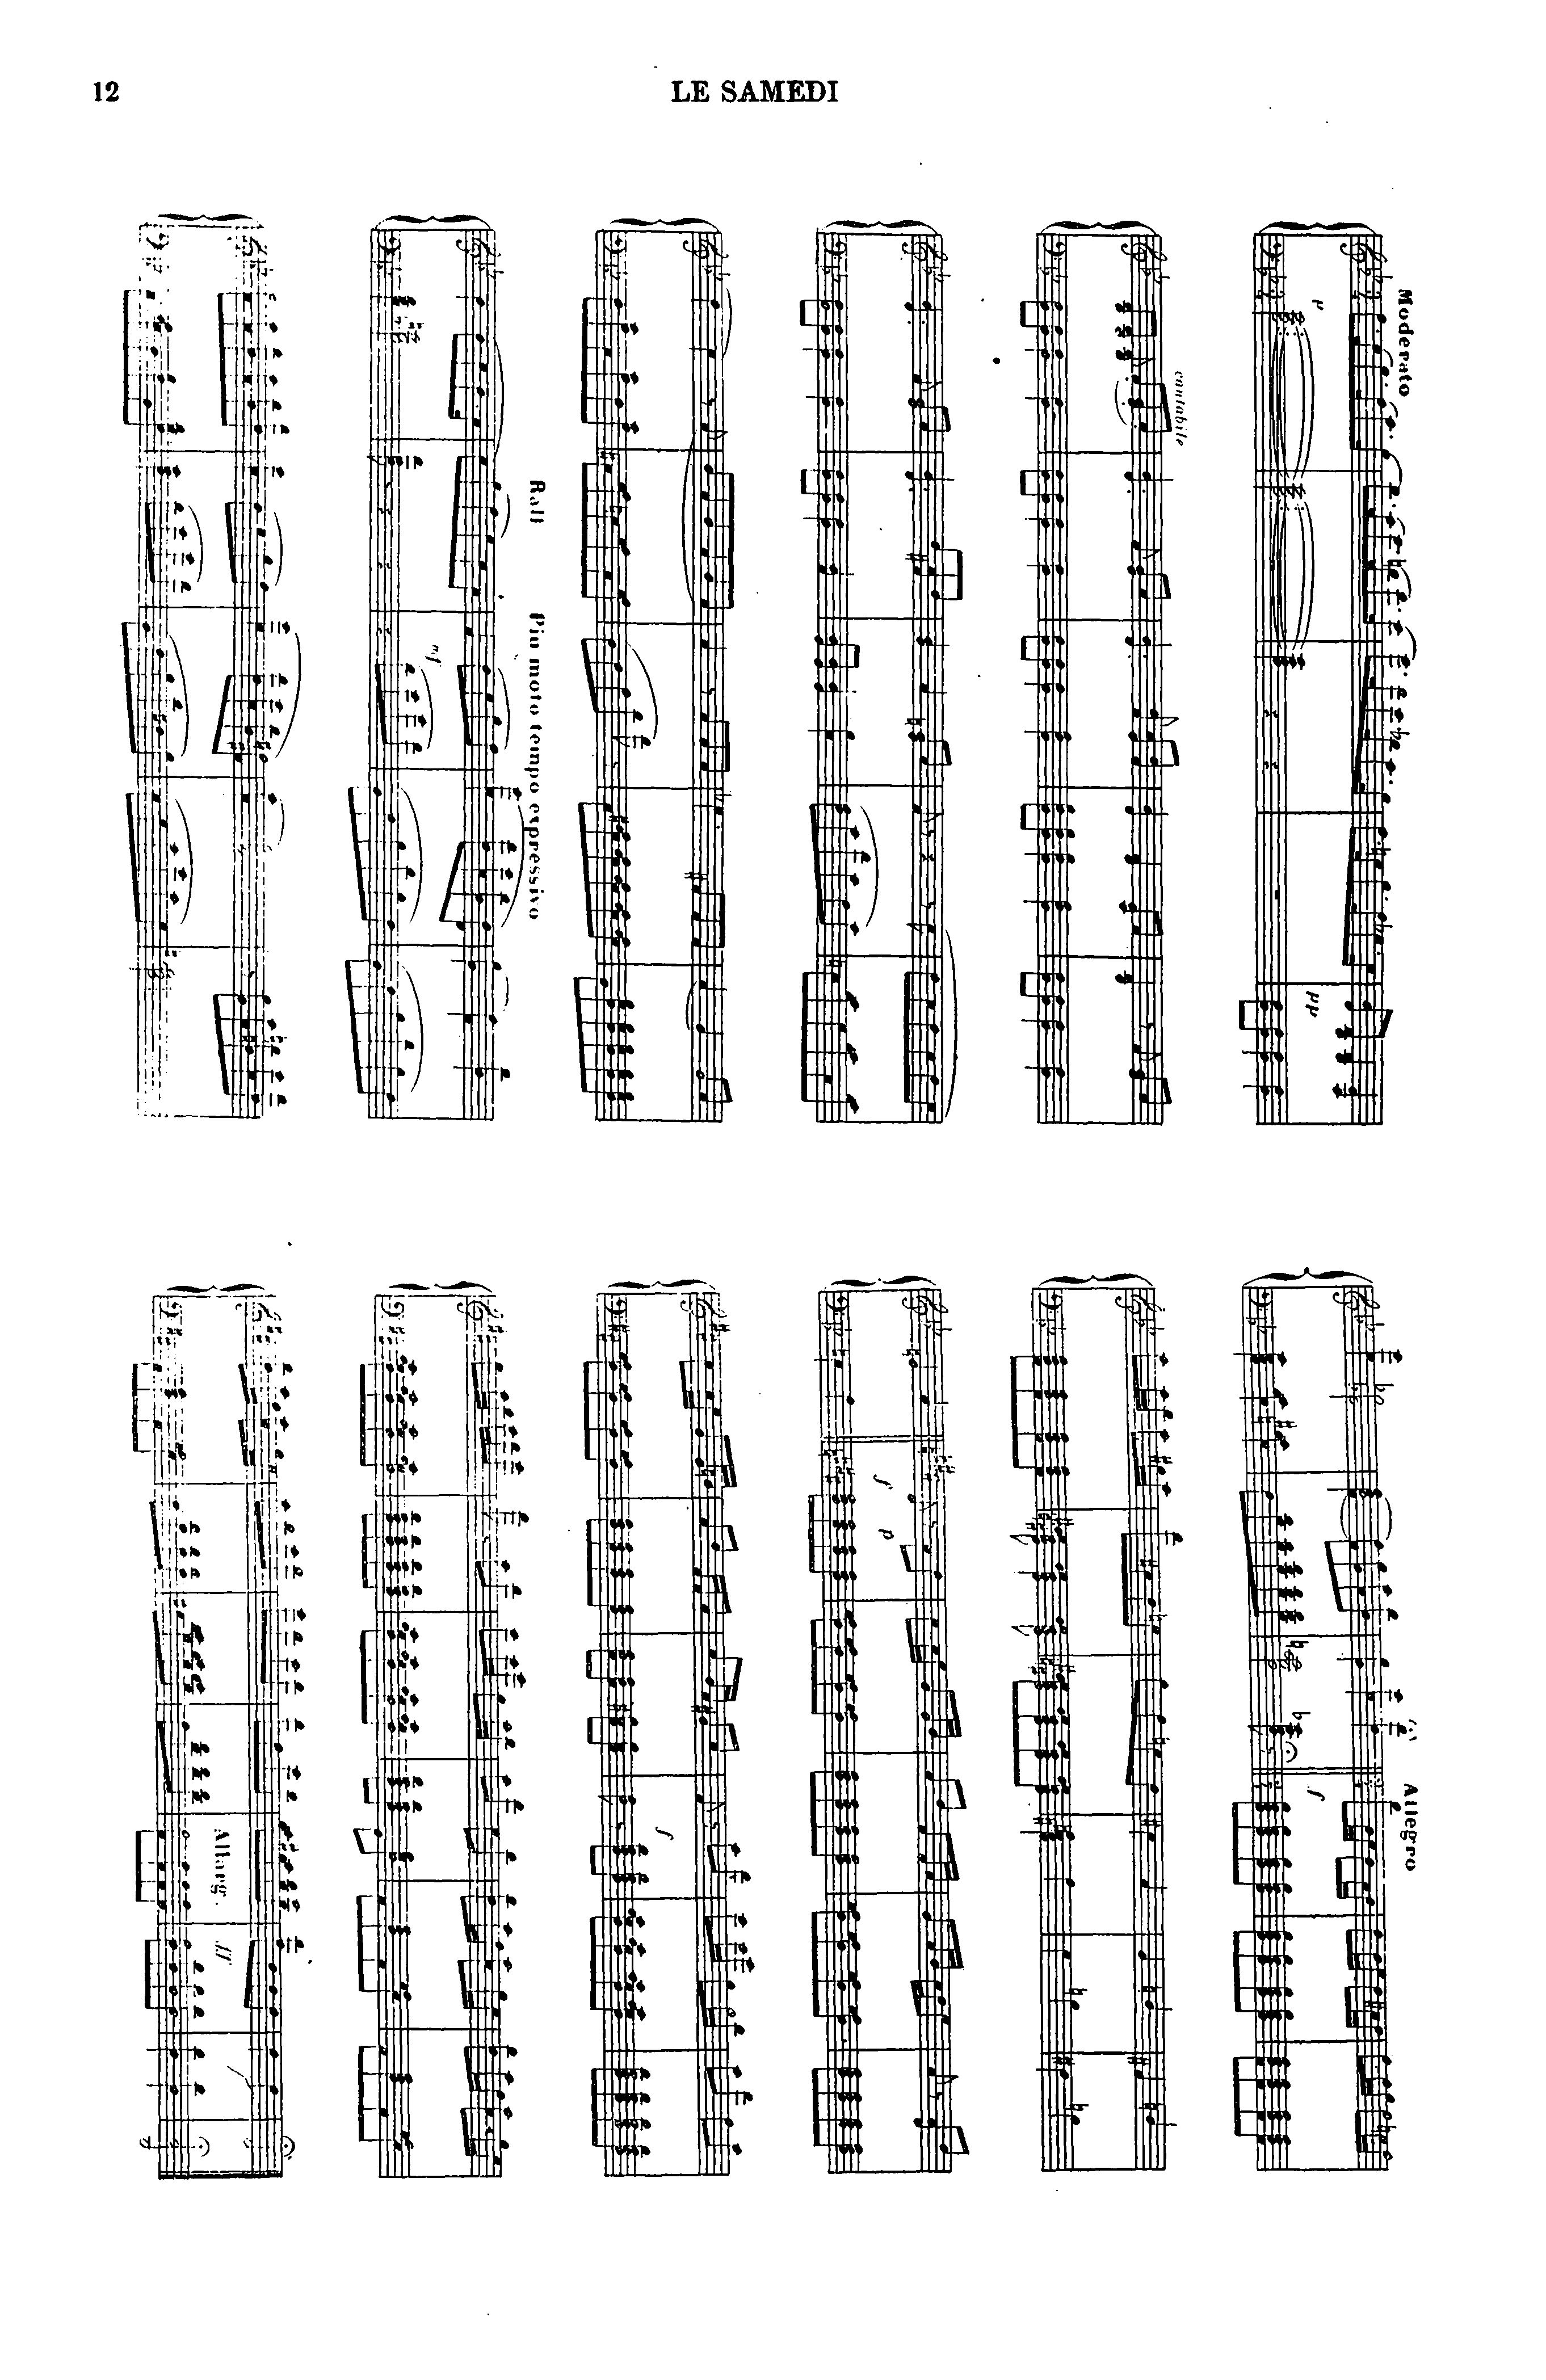 12
LE SAMEDI
Moderato
p
pp
cantabile
Rall
Piu moto tempo expressivo
mf
Allegro
f
f
p
f
Allarg.
ff